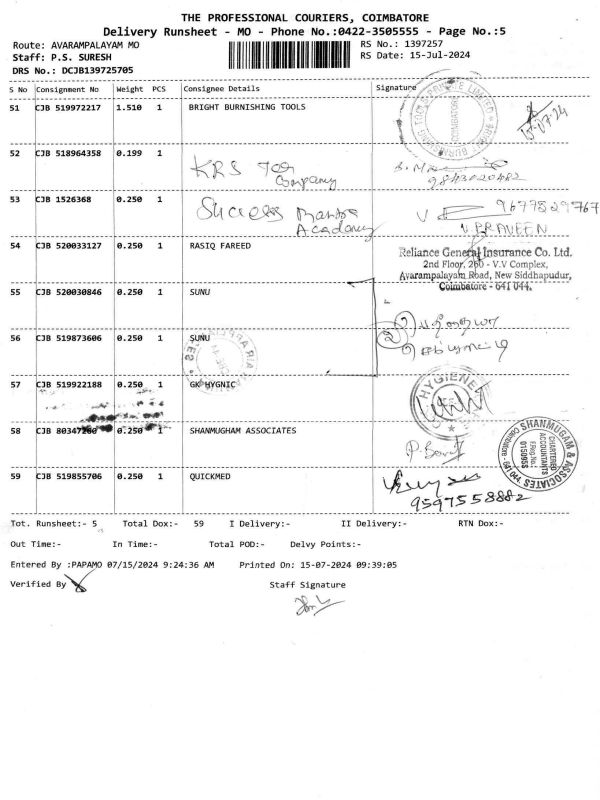 THE PROFESSIONAL COURIERS, COIMBATORE
Delivery Runsheet - MO - Phone No.:0422-3505555 - Page No.:5
Route: AVARAMPALAYAM MO
RS No.: 1397257
Staff: P.S. SURESH
RS Date: 15-Jul-2024
DRS No.: DCJB139725705
S No Consignment No Weight PCS Consignee Details Signature
51 CJB 519972217 1.510 1 BRIGHT BURNISHING TOOLS
COIMBATORE
15-07-24
52 CJB 518964358 0.199 1 KRS Tool Company
9843020482
53 CJB 1526368 0.250 1 Success Mantra Academy
9677529767
V. PRAVEEN
54 CJB 520033127 0.250 1 RASIQ FAREED
Reliance General Insurance Co. Ltd.
2nd Floor, 260 - V.V Complex,
Avarampalayam Road, New Siddhapudur,
Coimbatore - 641 044.
55 CJB 520030846 0.250 1 SUNU
56 CJB 519873606 0.250 1 SUNU
57 CJB 519922188 0.250 1 GK HYGNIC
HYGIENE
58 CJB 80347260 0.250 1 SHANMUGHAM ASSOCIATES
SHANMUGAM & ASSOCIATES
CHARTERED
ACCOUNTANTS
Coimbatore - 641 044.
59 CJB 519855706 0.250 1 QUICKMED
9597558882
Tot. Runsheet:- 5 Total Dox:- 59 I Delivery:- II Delivery:- RTN Dox:-
Out Time:- In Time:- Total POD:- Delvy Points:-
Entered By :PAPAMO 07/15/2024 9:24:36 AM Printed On: 15-07-2024 09:39:05
Verified By
Staff Signature